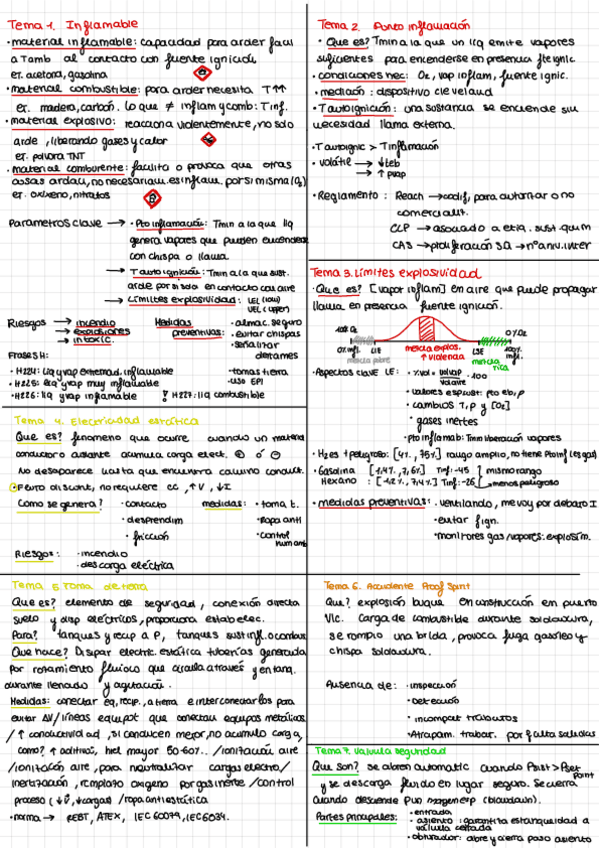 Tema 1. Inflamable
• material inflamable: capacidad para arder facil
a Tamb al contacto con fuente ignición
ej. acetona, gasolina
• material combustible: para arder necesita T↑↑
ej. madera, carbon. Lo que ≠ inflam y comb: T inf.
• material explosivo: reacciona violentemente, no solo
arde, liberando gases y calor
ej. polvora TNT
• material comburente: facilita o provoca que otras
cosas ardan, no necesariam. es inflam. por si misma (O₂)
ej. oxixeno, nitratos
Parametros clave → • Pto inflamación: Tmin a la que liq
genera vapores que pueden encenderse
con chispa o llama
→ T autoignición: Tmin a la que sust.
arde por si sola en contacto con aire
→ Límites explosividad: LEL (low)
UEL (upper)
Riesgos → incendio
→ explosiones
→ intoxic.
Medidas preventivas:
• almac. seguro
• evitar chispas
• señalizar
• derrames
• tomas tierra
• uso EPI
Frases H:
• H224: liq y vap extremad. inflamable
• H225: liq y vap muy inflamable
• H226: liq y vap inflamable
! H227: liq combustible
Tema 4. Electricidad estática
Que es? fenomeno que ocurre cuando un material
conductor o aislante acumula carga elect. ⊕ ó ⊖
No desaparece hasta que encuentra camino conduct.
• Feno discont, no requiere cc, ↑V, ↓I
Como se genera?
• contacto
• desprendim
• fricción
medidas:
• toma t.
• Ropa anti
• control
humant
Riesgos: • incendio
• descarga eléctrica
Tema 5 Toma de tierra
Que es? elemento de seguridad, conexión directa
suelo y disp electricos, proporciona estab elec.
Para? tanques y recip a P, tanques sust infl. o combus
Que hace? Dispar electric. estática tuberías generada
por rozamiento fluido que circula a través y en tanq.
durante llenado y agitación.
Medidas: conectar eq, recip, a tierra e interconectarlos para
evitar ΔV / líneas equipot que conectan equipos metálicos
/ ↑ conductividad, si conducen mejor, no acumula carga,
como? ↑ aditivos, hH mayor 50-60%.. / ionización aire
/ ionización aire, para neutralizar cargas electro /
inertización, remplazo oxigeno por gas inerte / control
proceso (↓v̄, ↓cargas) / ropa antiestática
• norma → REBT, ATEX, IEC 60079, IEC 6034.
Tema 2. Punto inflamación
• Que es? Tmin a la que un liq emite vapores
suficientes para encenderse en presencia fte ignic.
• condiciones nec: O₂, vap inflam, fuente ignic.
• medición: dispositivo cleveland
• T autoignición: una sustancia se enciende sin
necesidad llama externa.
• T autoignic > T inflamación
• volátil → ↓teb
→ ↑ pvap
• Reglamento: Reach → codif, para autorizar o no
comercialit.
CLP → asociado a etiq. sust. quim
CAS → proliferación SQ → nº anv. inter
Tema 3. Límites explosividad
• Que es? [vapor inflam] en aire que puede propagar
llama en presencia fuente ignición.
100% O₂
0% infl.
LIE
mezcla explos.
↑ violencia
LSE
0% O₂
100% infl.
mezcla pobre
mezcla rica
• Aspectos clave LE: • %vol = Vvap/Vaire · 100
• valores esp sust: pto eb, p
• cambios T, p y [O₂]
• gases inertes
• Pto inflamab: Tmin liberación vapores
• H₂ es + peligroso: [4%, 75%] rango amplio, no tiene Pto inf (es gas)
• Gasolina [1,4%, 7,6%] Tinf: -45 mismo rango
Hexano : [1,2%, 7,4%] Tinf: -26 menos peligroso
• medidas preventivas: • ventilando, me voy por debajo I
• evitar f ign.
• monitores gas/vapores: explosím.
Tema 6. Accidente Proof Spirit
Que? explosión buque en construcción en puerto
Vlc. Carga de combustible durante soldadura,
se rompio una brida, provoca fuga gasoleo y
chispa soldadura.
Ausencia de: • inspección
• Detección
• incompat trabajos
• Atrapam. trabar. por falta salidas
Tema 7. Valvula seguridad
Que son? se abren automatic cuando Psist > Pset point
y se descarga fluido en lugar seguro. Se cierra
cuando desciende P un margen exp (blowdown).
Partes principales: • entrada
• asiento: garantiza estanqueidad a
valvula cerrada
• obturador: abre y cierra paso asiento